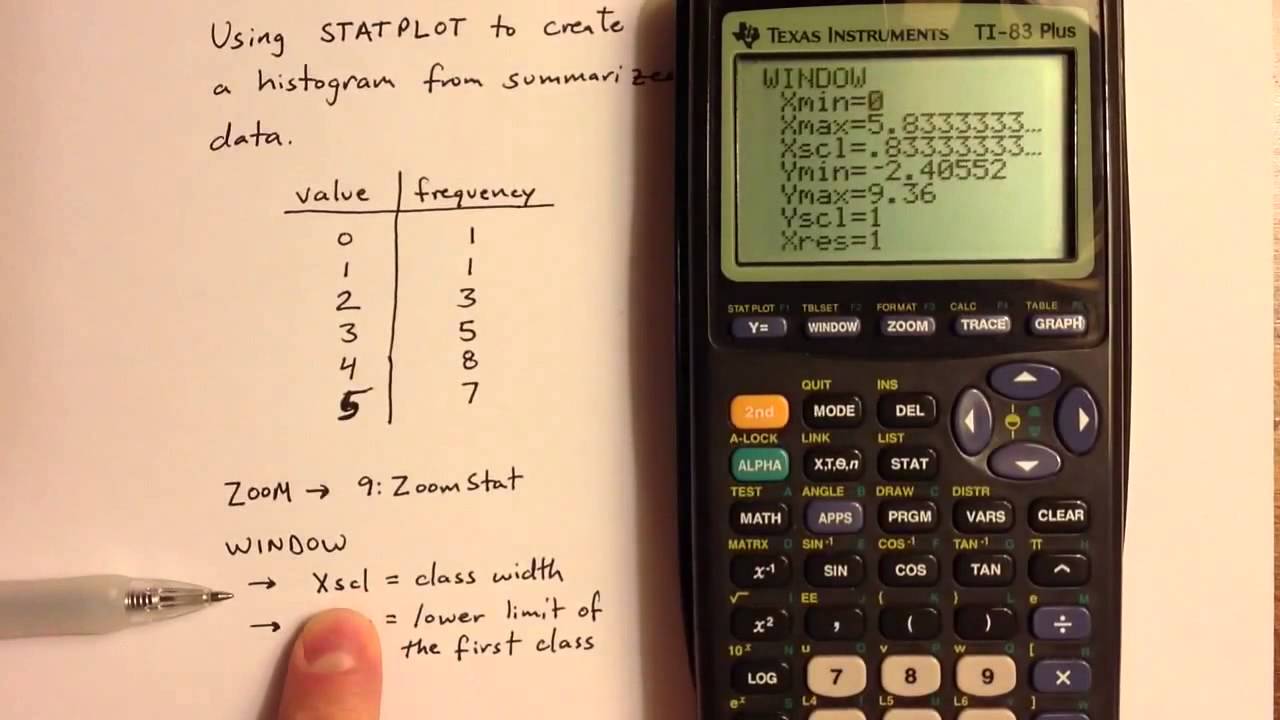 Using STATPLOT to create
a histogram from summarize
data.
value frequency
0 1
1 1
2 3
3 5
4 8
5 7
ZOOM → 9: ZoomStat
WINDOW
→ Xscl = class width
→ = lower limit of
the first class
TEXAS INSTRUMENTS TI-83 Plus
WINDOW
Xmin=0
Xmax=5.8333333…
Xscl=.83333333…
Ymin=-2.40552
Ymax=9.36
Yscl=1
Xres=1
STAT PLOT F1 TBLSET F2 FORMAT F3 CALC F4 TABLE F5
Y= WINDOW ZOOM TRACE GRAPH
QUIT INS
2nd MODE DEL
A-LOCK LINK LIST
ALPHA X,T,Θ,n STAT
TEST A ANGLE B DRAW C DISTR
MATH APPS PRGM VARS CLEAR
MATRX D SIN⁻¹ E COS⁻¹ F TAN⁻¹ G π H
x⁻¹ SIN COS TAN ^
√ I EE J { K } L e M
x² , ( ) ÷
10ˣ N u O v P w Q [ R
LOG 7 8 9 ×
eˣ S L4 T L5 U L6 V ] W